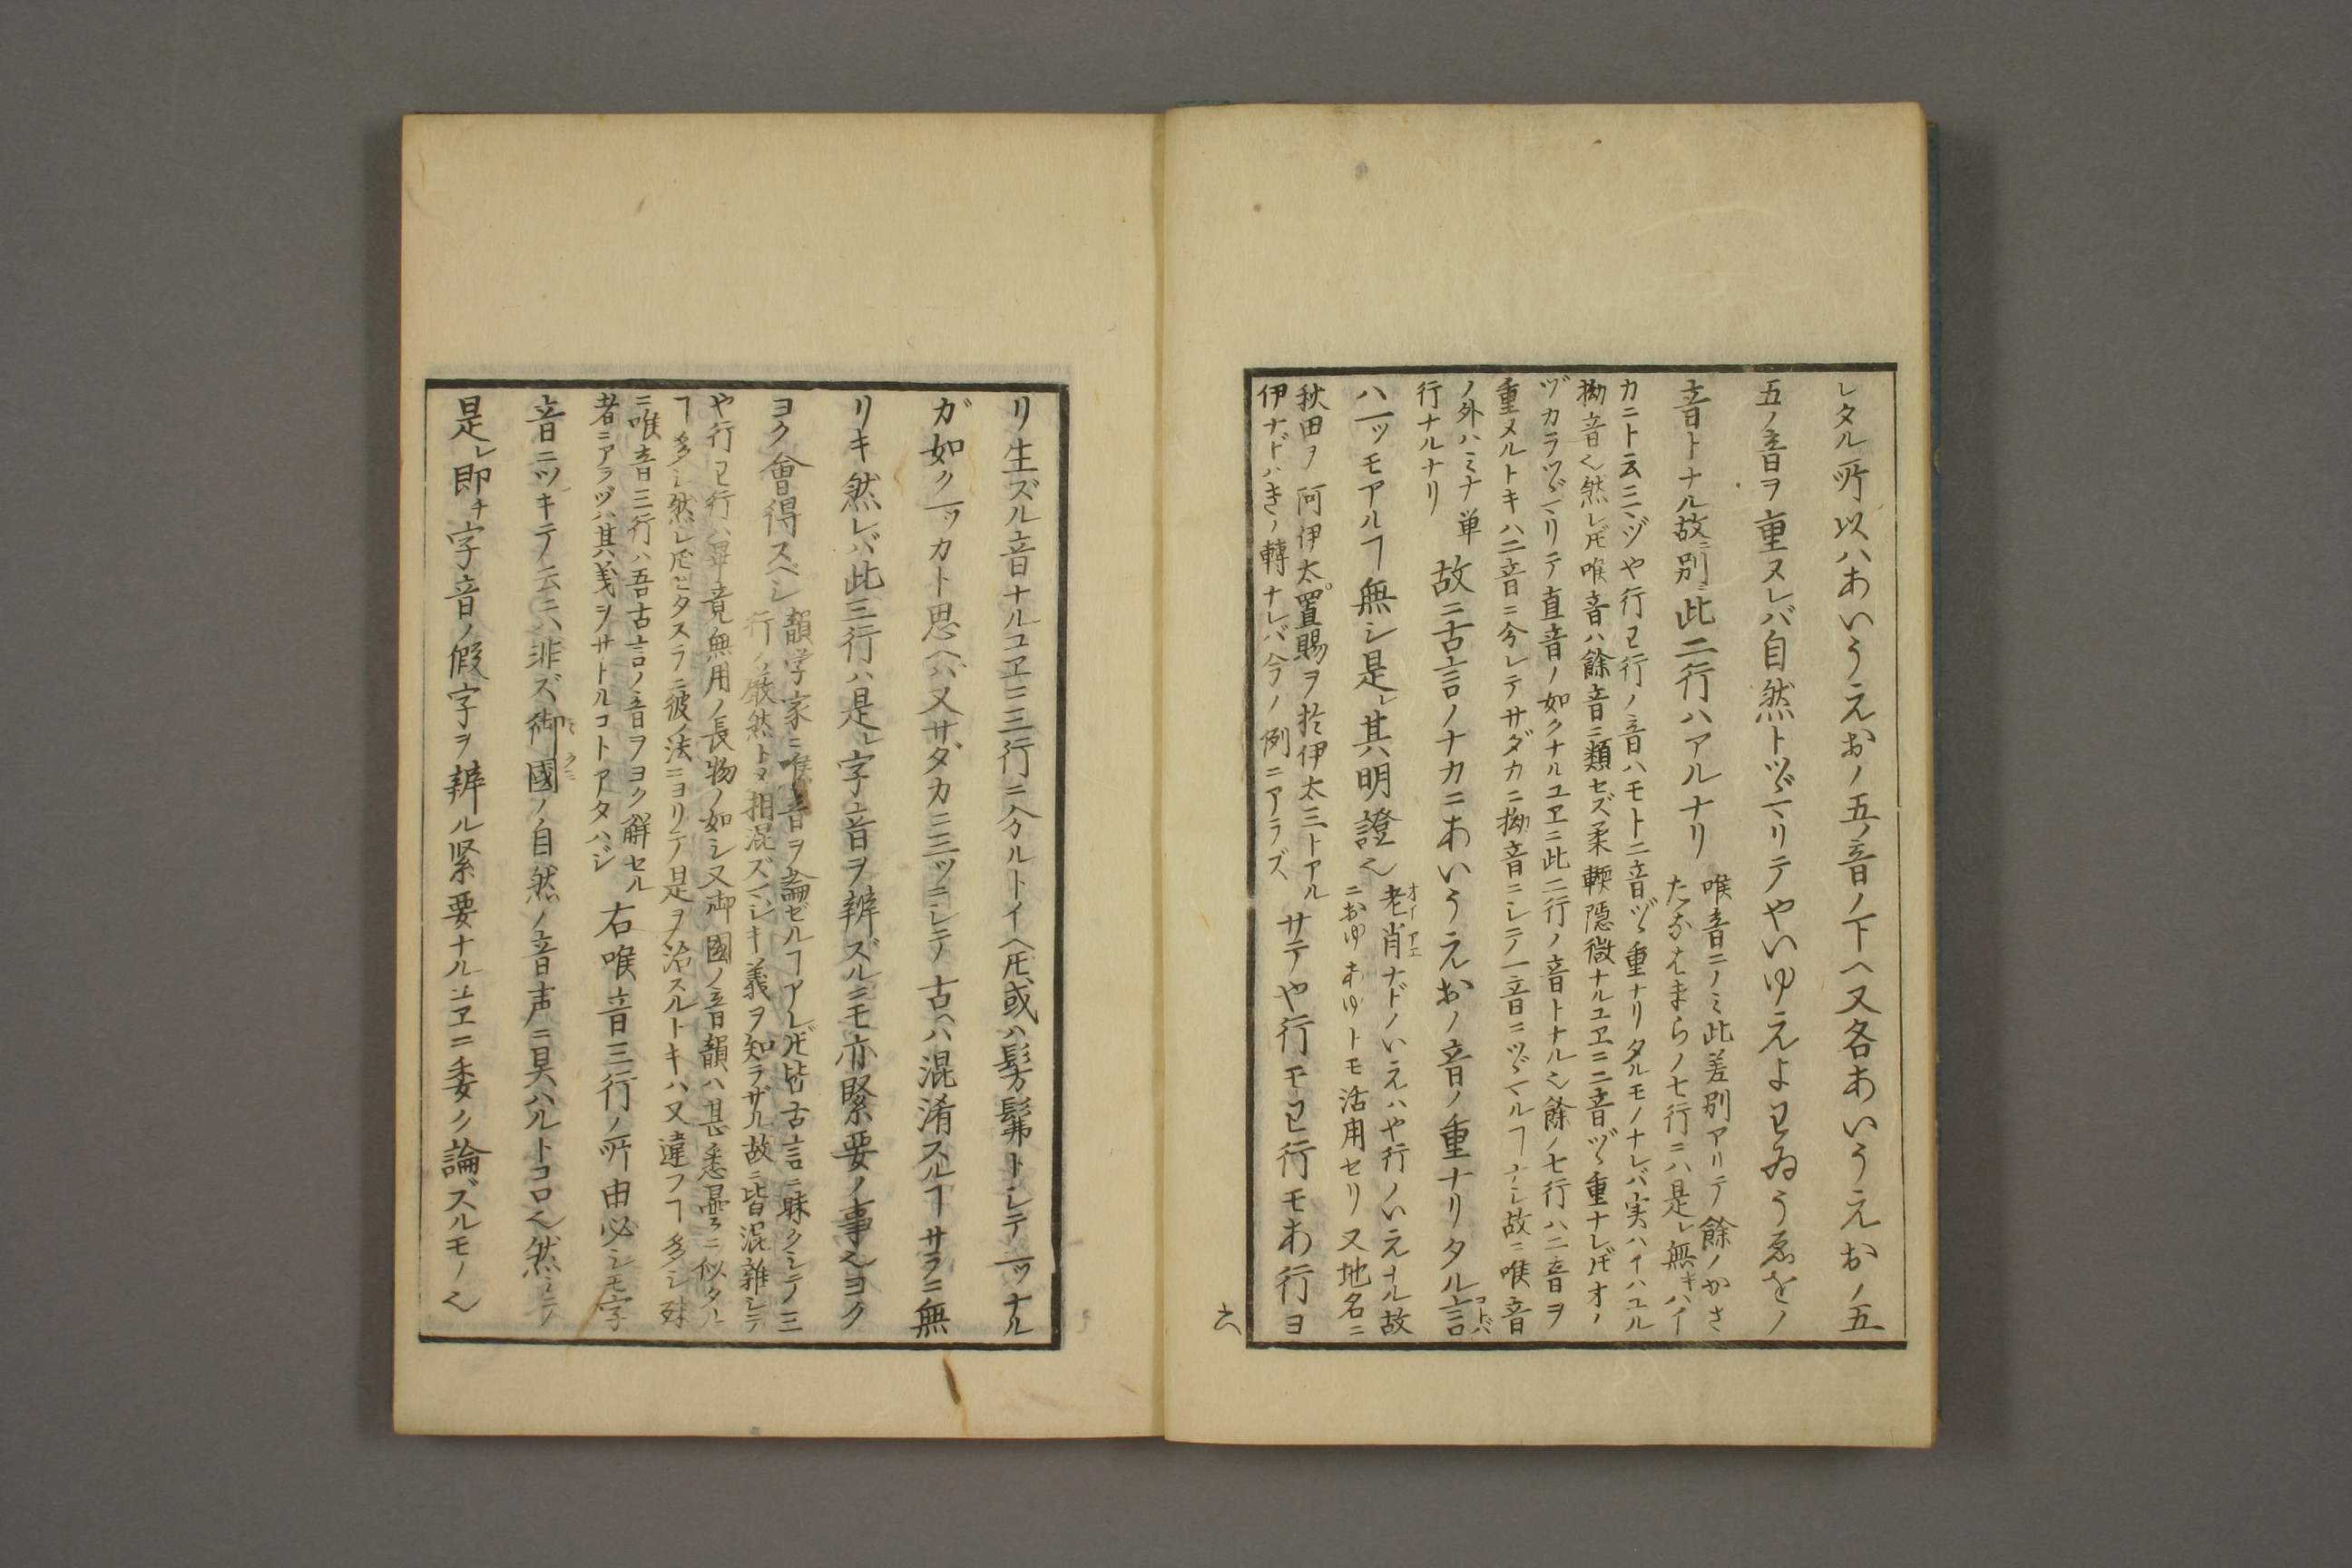 レタル所以ハあいうえおノ五ノ音ノ下ヘ又各あいうえおノ五
五ノ音ヲ重ヌレバ自然トツヾマリテやいゆえよわゐうゑをノ
音トナル故ニ別ニ此二行ハアルナリ
喉音ニノミ此差別アリテ餘ノかさ
たなはまらノ七行ニハ是レ無キハイ
カニト云ニマヅや行わ行ノ音ハモト二音ヅヽ重ナリタルモノナレバ実ハイハユル
拗音也然レ𪜈喉音ハ餘音ニ類セズ柔軟隠微ナルユヱニ二音ヅヽ重ナレ𪜈オノ
ヅカラツヾマリテ直音ノ如クナルユヱニ此二行ノ音トナル也餘ノ七行ハ二音ヲ
重ヌルトキハ二音ニ分レテサダカニ拗音ニシテ一音ニツヾマルヿナシ故ニ喉音
ノ外ハミナ単
行ナルナリ
故ニ古言ノナカニあいうえおノ音ノ重ナリタル言コトバ
ハ一ツモアルヿ無シ是レ其明證也
老オイ肖アエナドノいえハや行ノいえナル故
ニおゆあゆトモ活用セリ又地名ニ
秋田ヲ阿伊太置賜ヲ於伊太三トアル
伊ナドハきノ轉ナレバ今ノ例ニアラズ
サテや行モわ行モあ行ヨ
六
リ生ズル音ナルユヱニ三行ニ分ルトイヘ𪜈或ハ髣髴トシテ一ツナル
ガ如ク一ツカト思ヘバ又サダカニ三ツニシテ古ヘハ混淆スルヿサラニ無
リキ然レバ此三行ハ是レ字音ヲ辨ズルニモ亦緊要ノ事也ヨク
ヨク會得スベシ
韻学家ニ喉音ヲ論ゼルヿアレ𪜈皆古言ニ昧クシテ三
行ノ厳然トメ相混ズマジキ義ヲ知ラザル故ニ皆混雑シテ
や行わ行ハ畢竟無用ノ長物ノ如シ又御國ノ音韻ハ甚悉曇ニ似タル
ヿ多シ然レ𪜈ヒタスラニ彼ノ法ニヨリテ是ヲ治スルトキハ又違フヿ多シ殊
ニ喉音三行ハ吾古言ノ音ヲヨク解セル
者ニアラヅハ其義ヲサトルコトアタハジ
右喉音三行ノ所由必シモ字
音ニツキテノ云ニハ非ズ御ミ國クニノ自然ノ音声ニ具ハルトコロ也然シテ
是レ即チ字音ノ假字ヲ辨ル緊要ナルユヱニ委ク論ズルモノ也